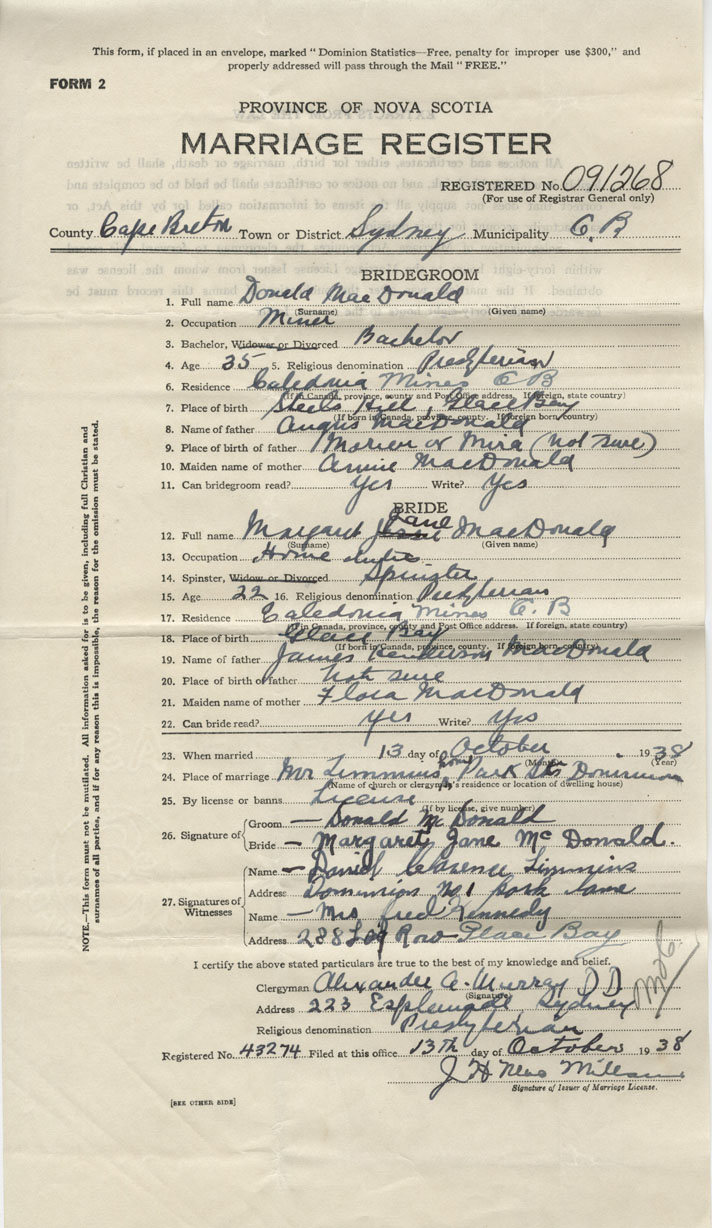 This form, if placed in an envelope, marked "Dominion Statistics—Free, penalty for improper use $300," and
properly addressed will pass through the Mail "FREE."
FORM 2
PROVINCE OF NOVA SCOTIA
MARRIAGE REGISTER
REGISTERED No. 091268
(For use of Registrar General only)
County Cape Breton Town or District Sydney Municipality C. B
BRIDEGROOM
1. Full name Donald MacDonald
(Surname) (Given name)
2. Occupation Miner
3. Bachelor, Widower or Divorced Bachelor
4. Age 35 5. Religious denomination Presbyterian
6. Residence Caledonia Mines C B
(If in Canada, province, county and Post Office address. If foreign, state country)
7. Place of birth Steels Hill, Glace Bay
(If born in Canada, province, county. If foreign born, country)
8. Name of father Angus MacDonald
9. Place of birth of father Morien or Mira (not sure)
10. Maiden name of mother Annie MacDonald
11. Can bridegroom read? Yes Write? Yes
BRIDE
12. Full name Margaret Jane MacDonald
(Surname) (Given name)
13. Occupation Home duties
14. Spinster, Widow or Divorced Spinster
15. Age 22 16. Religious denomination Presbyterian
17. Residence Caledonia Mines C. B
(If in Canada, province, county and Post Office address. If foreign, state country)
18. Place of birth Glace Bay
(If born in Canada, province, county. If foreign born, country)
19. Name of father James Henderson MacDonald
20. Place of birth of father not sure
21. Maiden name of mother Flora MacDonald
22. Can bride read? Yes Write? Yes
23. When married 13 day of October 1938
(Month) (Year)
24. Place of marriage Mr Timmins home, Park St. Dominion
(Name of church or clergyman's residence or location of dwelling house)
25. By license or banns License
(If by license, give number)
26. Signature of
Groom — Donald McDonald
Bride — Margaret Jane McDonald.
27. Signatures of Witnesses
Name — Daniel Clarence Timmins
Address Dominion No 1 park lane
Name — Mrs Fred Kennedy
Address 288 Row Glace Bay
I certify the above stated particulars are true to the best of my knowledge and belief.
Clergyman Alexander A. Murray D D.
(Signature)
Address 223 Esplanade Sydney
Religious denomination Presbyterian
Registered No. 43274 Filed at this office 13th day of October 1938
J H
Signature of Issuer of Marriage License.
[SEE OTHER SIDE]
NOTE.—This form must not be mutilated. All information asked for is to be given, including full Christian and
surnames of all parties, and if for any reason this is impossible, the reason for the omission must be stated.